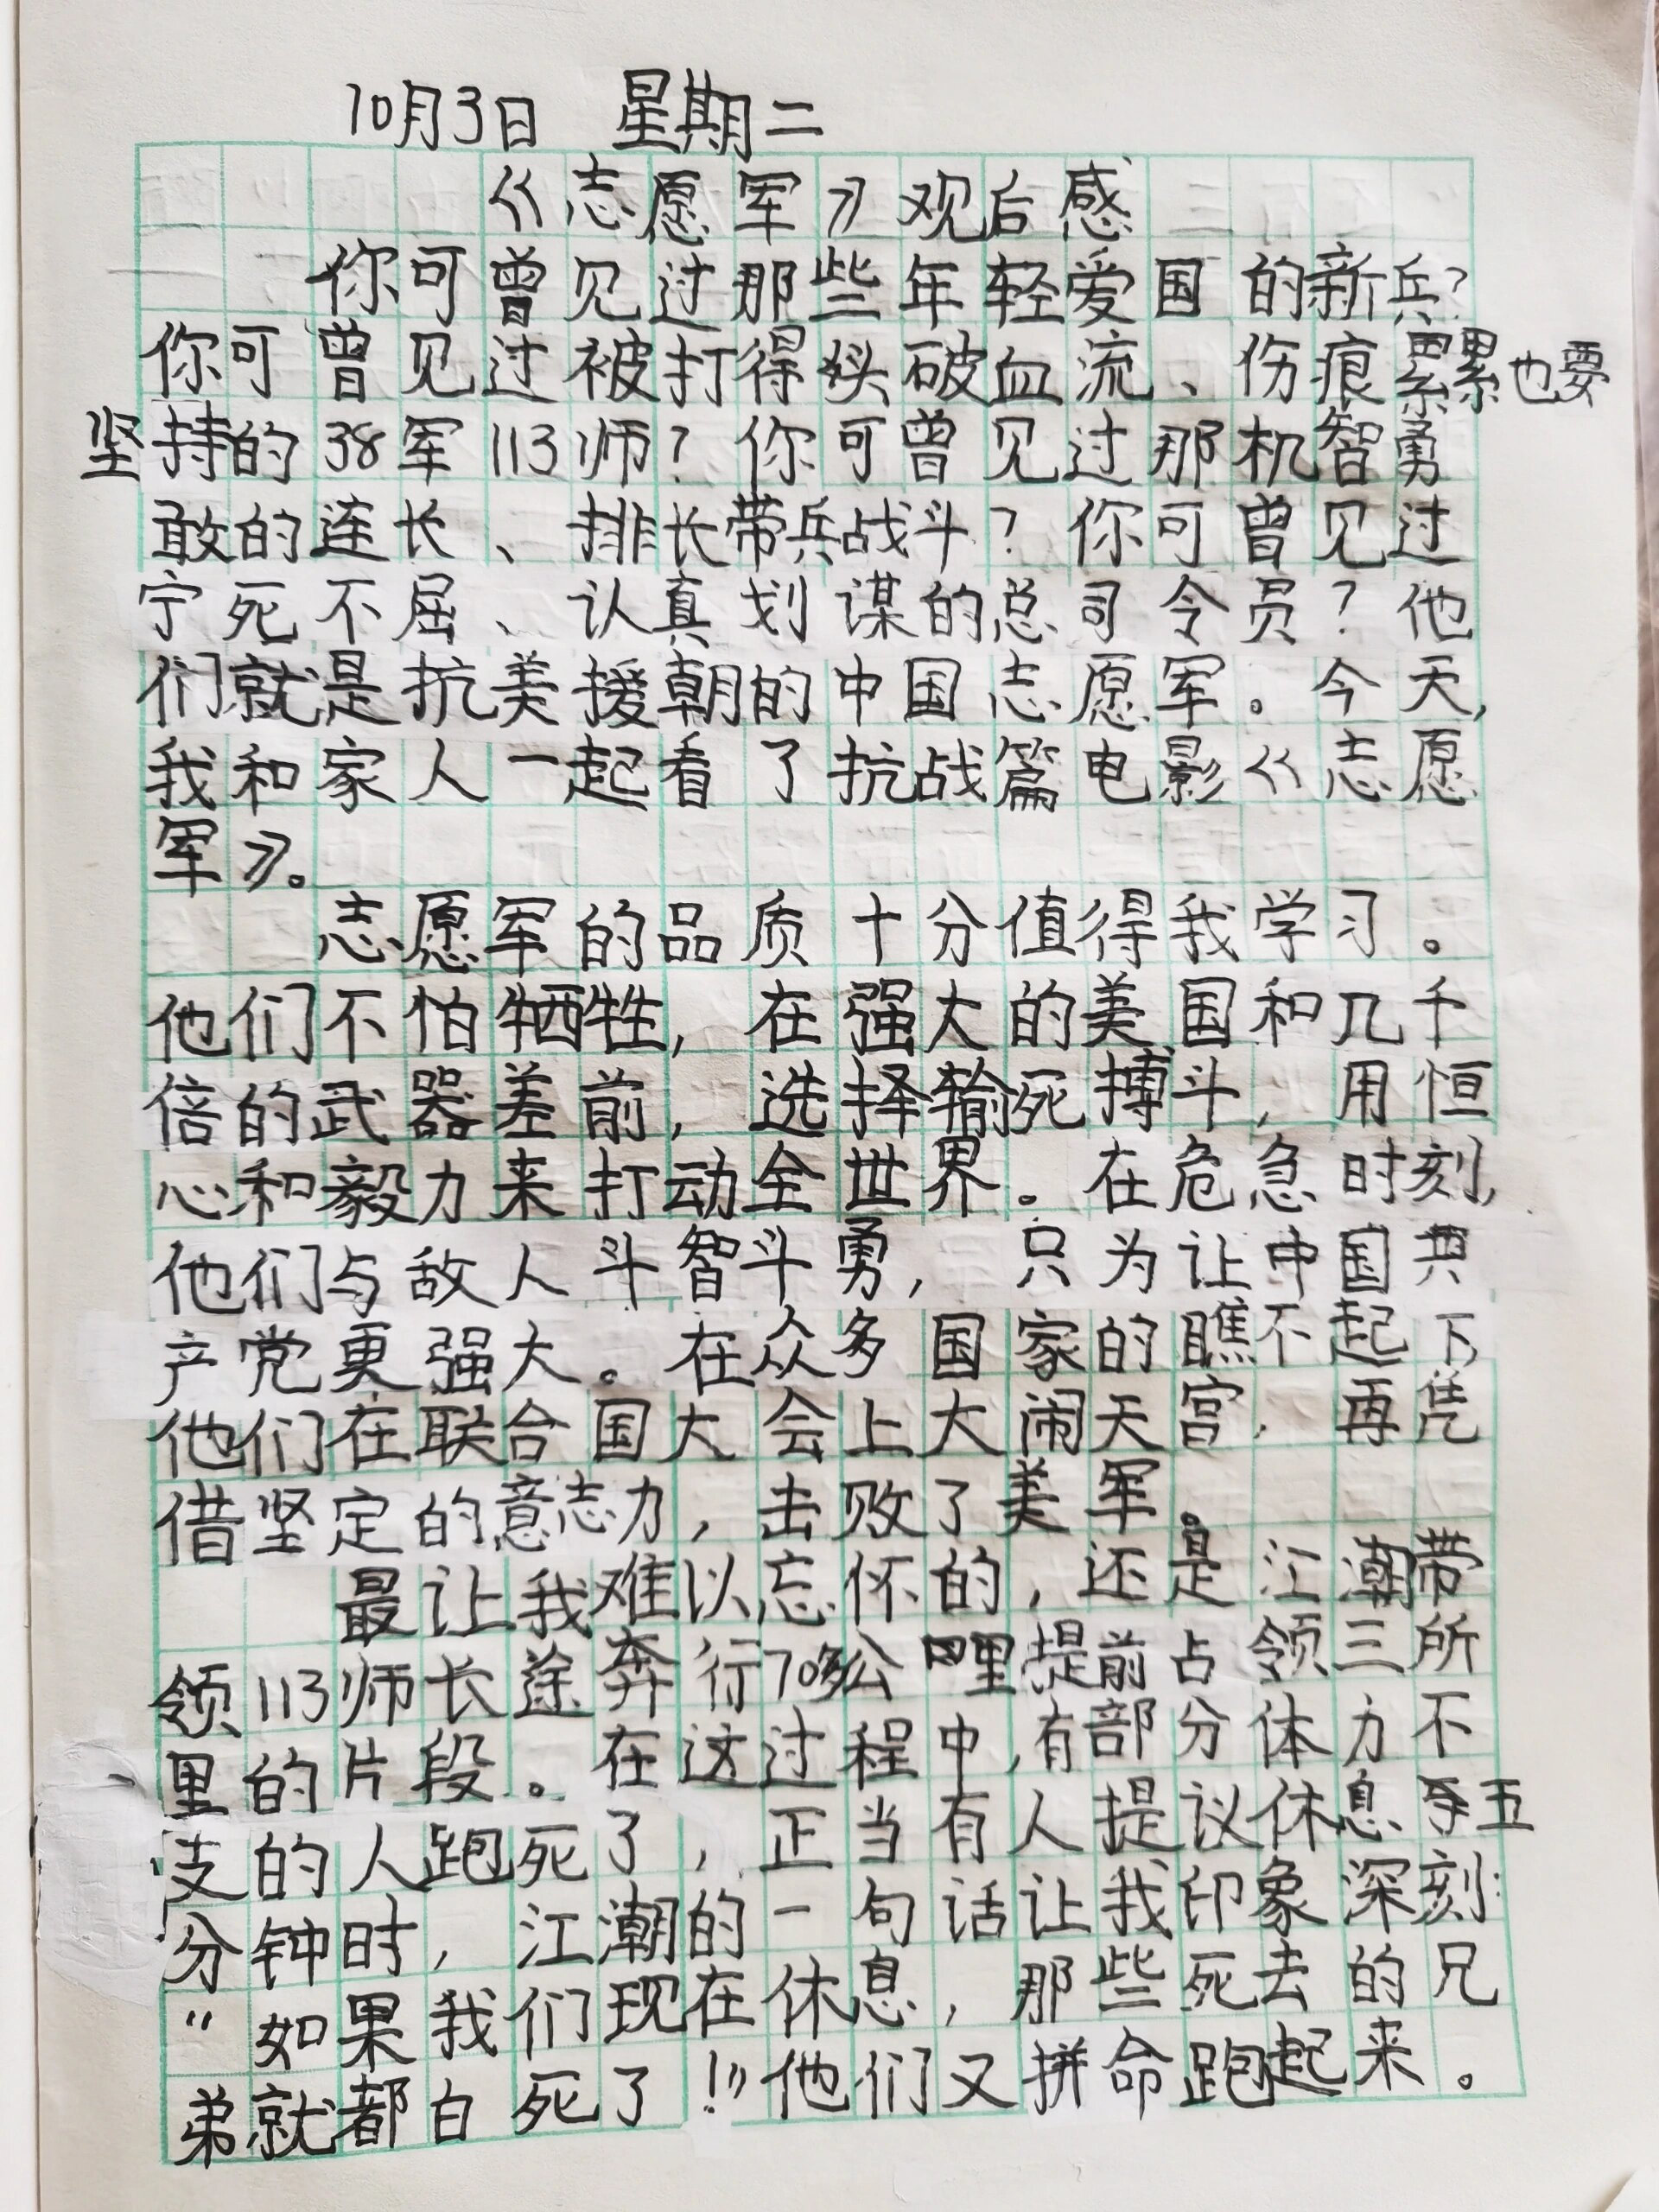 10月3日 星期二
《志愿军》观后感
你可曾见过那些年轻爱国的新兵?
你可曾见过被打得头破血流、伤痕累累也要
坚持的38军113师?你可曾见过那机智勇
敢的连长、排长带兵战斗?你可曾见过
宁死不屈、认真划谋的总司令员?他
们就是抗美援朝的中国志愿军。今天,
我和家人一起看了抗战篇电影《志愿
军》。
志愿军的品质十分值得我学习。
他们不怕牺牲,在强大的美国和几千
倍的武器差前,选择输死搏斗,用恒
心和毅力来打动全世界。在危急时刻,
他们与敌人斗智斗勇,只为让中国共
产党更强大。在众多国家的瞧不起下
他们在联合国大会上大闹天宫,再凭
借坚定的意志力,击败了美军。
最让我难以忘怀的,还是江潮带
领113师长途奔行70多公哩提前占领三所
里的片段。在这过程中,有部分体力不
支的人跑死了,正当有人提议休息五
分钟时,江潮的一句话让我印象深刻:
“如果我们现在休息,那些死去的兄
弟就都白死了!”他们又拼命跑起来。